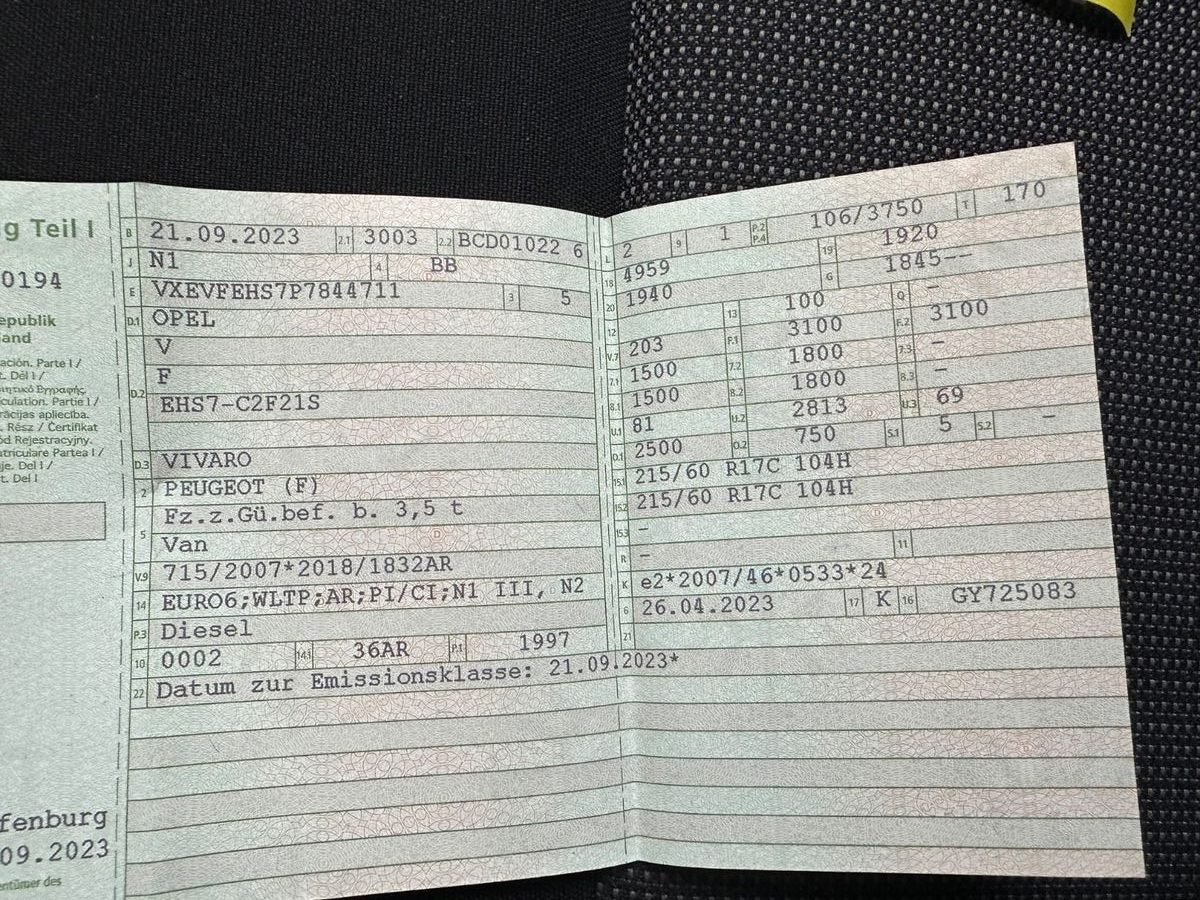 g Teil I
0194
epublik
land
ación. Parte I /
t. Del I /
ητικό Εγγραφής.
culation. Partie I /
rācijas apliecība.
. Rész / Ċertifikat
ód Rejestracyjny.
atriculare Partea I /
je. Del I /
t. Del I
fenburg
09.2023
entümer des
B 21.09.2023 2.1 3003 2.2 BCD01022 6
J N1 4 BB
E VXEVFEHS7P7844711 3 5
D.1 OPEL
V
F
D.2 EHS7-C2F21S
D.3 VIVARO
2 PEUGEOT (F)
Fz.z.Gü.bef. b. 3,5 t
5 Van
V.9 715/2007*2018/1832AR
14 EURO6;WLTP;AR;PI/CI;N1 III, N2
P.3 Diesel
10 0002 14.1 36AR P.1 1997
22 Datum zur Emissionsklasse: 21.09.2023*
L 2 9 1 P.2 P.4 106/3750 T 170
18 4959 19 1920
20 1940 G 1845--
12 13 100 Q -
V.7 203 F.1 3100 F.2 3100
7.1 1500 7.2 1800 7.3 -
8.1 1500 8.2 1800 8.3 -
U.1 81 U.2 2813 U.3 69
O.1 2500 O.2 750 S.1 5 S.2 -
15.1 215/60 R17C 104H
15.2 215/60 R17C 104H
15.3 -
R - 11
K e2*2007/46*0533*24
6 26.04.2023 17 K 16 GY725083
21